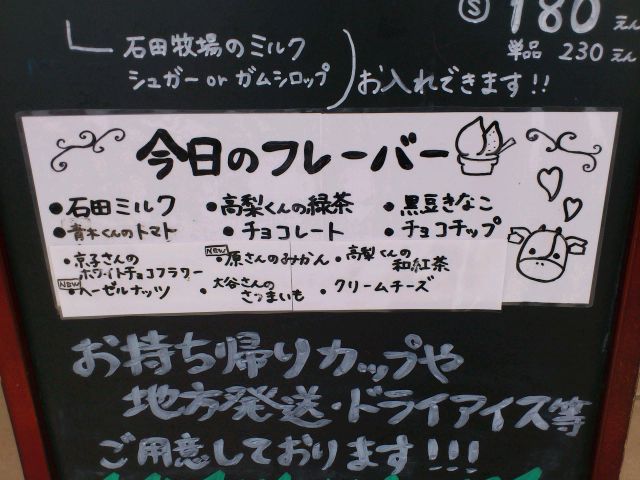 Ⓢ 180えん
石田牧場のミルク 単品 230えん
シュガーorガムシロップ お入れできます!!
今日のフレーバー
•石田ミルク •高梨くんの緑茶 •黒豆きなこ
•青木くんのトマト •チョコレート •チョコチップ
•京子さんの NEW •原さんのみかん •高梨くんの
ホワイトチョコフラワー 和紅茶
NEW •ヘーゼルナッツ •大谷さんの •クリームチーズ
さつまいも
お持ち帰りカップや
地方発送・ドライアイス等
ご用意しております!!!